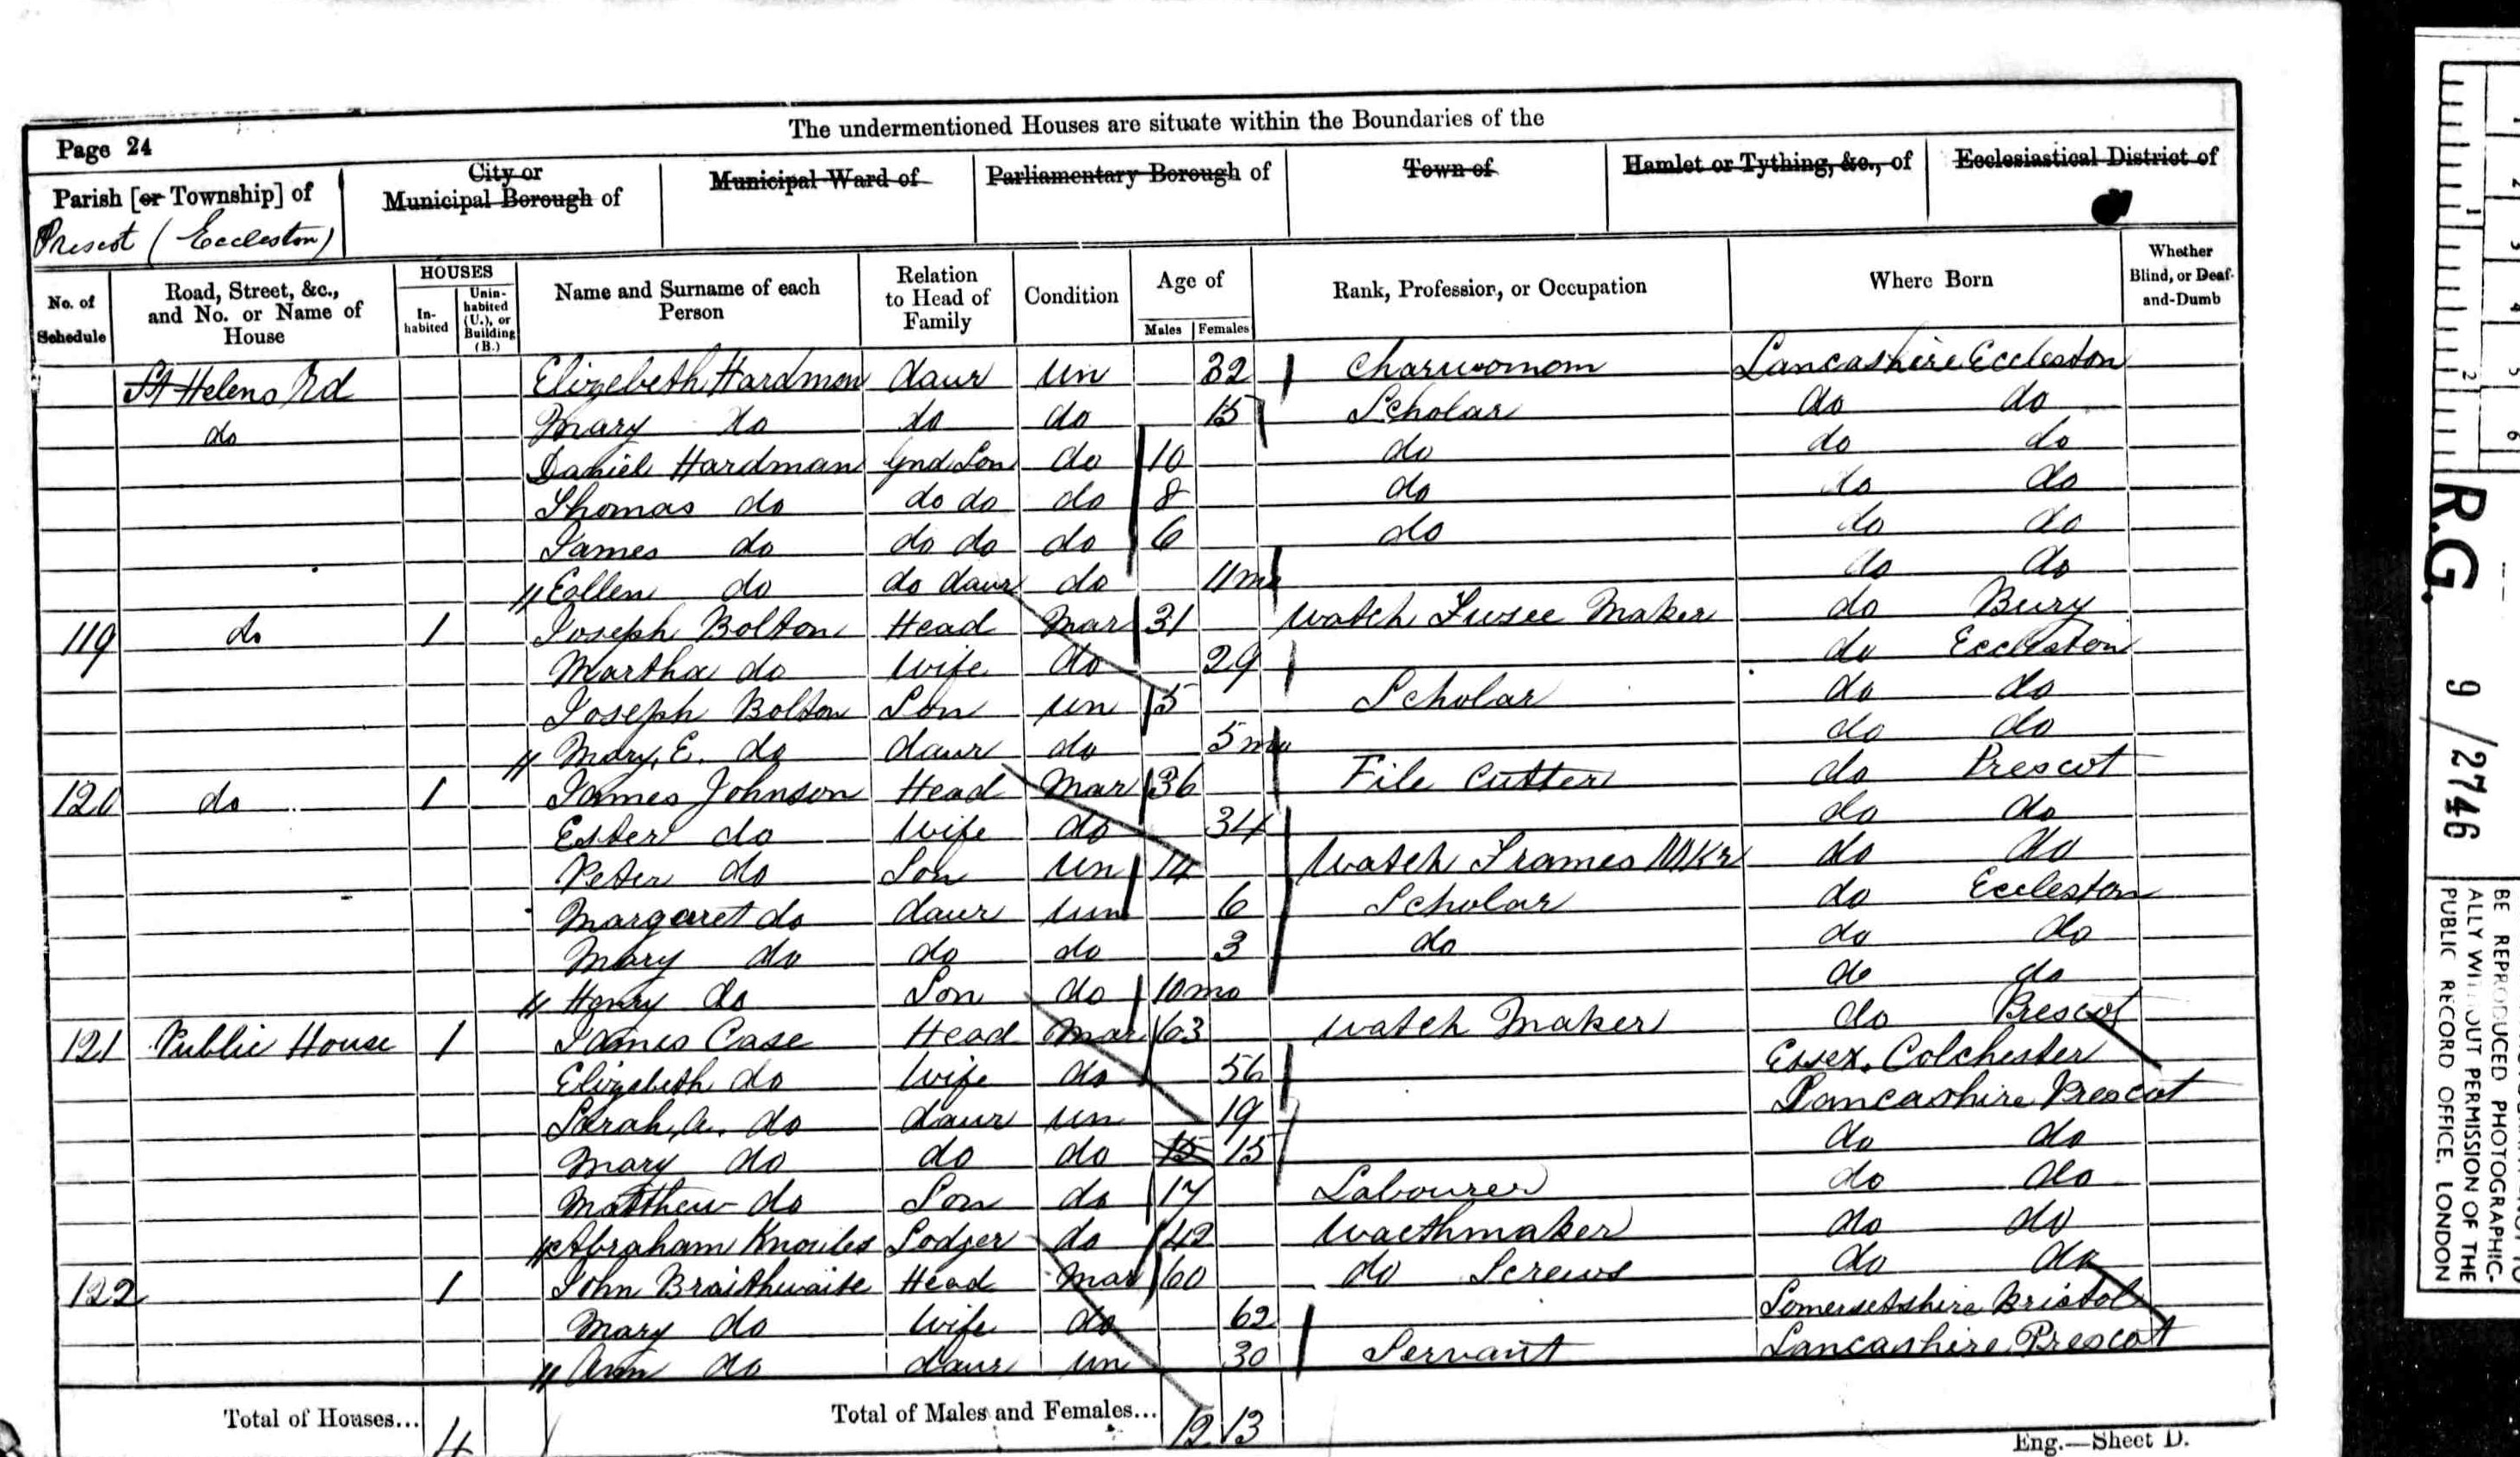 The undermentioned Houses are situate within the Boundaries of the
Page 24
Parish [or Township] of
City or
Municipal Borough of
Municipal Ward of
Parliamentary Borough of
Town of
Hamlet or Tything, &c., of
Ecclesiastical District of
Prescot (Eccleston)
No. of
Schedule
Road, Street, &c.,
and No. or Name of
House
HOUSES
In-
habited
Unin-
habited
(U.), or
Building
(B.)
Name and Surname of each
Person
Relation
to Head of
Family
Condition
Age of
Males Females
Rank, Profession, or Occupation
Where Born
Whether
Blind, or Deaf-
and-Dumb
St Helens Rd Elizebeth Hardman daur un 32 Charwomom Lancashire Eccleston
do Mary do do do 15 Scholar do do
Daniel Hardman Gnd Son do 10 do do do
Thomas do do do do 8 do do do
James do do do do 6 do do do
Eallen do do daur do 11 mo do do
119 do 1 Joseph Bolton Head Mar 31 Watch Fusee Maker do Bury
Martha do Wife do 29 do Eccleston
Joseph Bolton Son un 5 Scholar do do
Mary, E. do daur do 5 mo do do
120 do 1 James Johnson Head Mar 36 File Cutter do Prescot
Ester do Wife do 34 do do
Peter do Son un 14 Watch Frames MKr do do
Margaret do daur un 6 Scholar do Eccleston
Mary do do do 3 do do do
Henry do Son do 10 mo do do
121 Public House 1 James Case Head Mar 63 Watch Maker do Prescot
Elizebeth do Wife do 56 Essex. Colchester
Sarah, A. do daur un 19 Lancashire Prescot
Mary do do do 15 15 do do
Matthew do Son do 17 Labourer do do
Abraham Knowles Lodger do 42 Wacthmaker do do
122 1 John Braithwaite Head Mar 60 do Screws do do
Mary do Wife do 62 Somersetshire Bristol
Ann do daur un 30 Servant Lancashire Prescot
Total of Houses... 4
Total of Males and Females... 12 13
Eng.—Sheet D.
R.G. 9/2746
BE REPRODUCED PHOTOGRAPHIC-
ALLY WITHOUT PERMISSION OF THE
PUBLIC RECORD OFFICE, LONDON